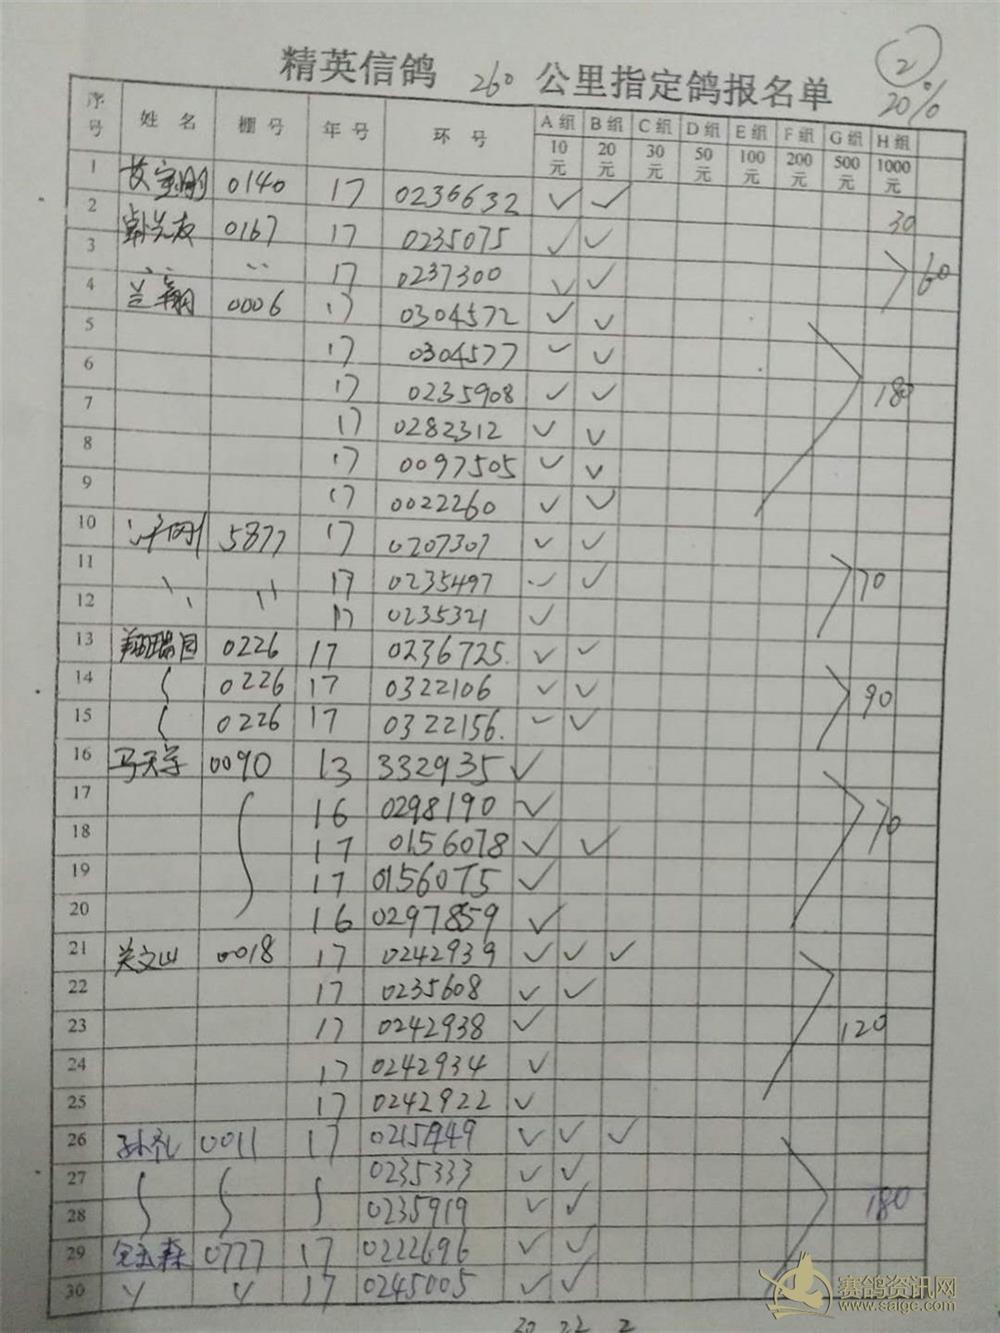 2
20%
精英信鸽 260 公里指定鸽报名单
序号 姓名 棚号 年号 环号 A组 B组 C组 D组 E组 F组 G组 H组
10元 20元 30元 50元 100元 200元 500元 1000元
1 艾宝刚 0140 17 0236632 ✓ ✓ 30
2 韩先友 0167 17 0235075 ✓ ✓
3 〃 〃 17 0237300 ✓ ✓ 60
4 兰翔 0006 17 0304572 ✓ ✓
5 17 0304577 ✓ ✓
6 17 0235908 ✓ ✓ 180
7 17 0282312 ✓ ✓
8 17 0097505 ✓ ✓
9 17 0022260 ✓ ✓
10 5877 17 0207307 ✓ ✓
11 〃 〃 17 0235497 ✓ ✓ 70
12 17 0235321 ✓
13 翔瑞园 0226 17 0236725. ✓ ✓
14 0226 17 0322106 ✓ ✓ 90
15 0226 17 0322156. ✓ ✓
16 马天宇 0090 13 332935 ✓
17 16 0298190 ✓
18 17 0156078 ✓ ✓ 70
19 17 0156075 ✓
20 16 0297859 ✓
21 关文山 0018 17 0242939 ✓ ✓ ✓
22 17 0235608 ✓ ✓
23 17 0242938 ✓ 120
24 17 0242934 ✓
25 17 0242922 ✓
26 孙礼 0011 17 0215949 ✓ ✓ ✓
27 0235333 ✓ ✓
28 0235919 ✓ ✓ 180
29 0777 17 0222696 ✓ ✓
30 〃 〃 17 0245005 ✓ ✓
30 22 2
赛鸽资讯网
www.saige.com